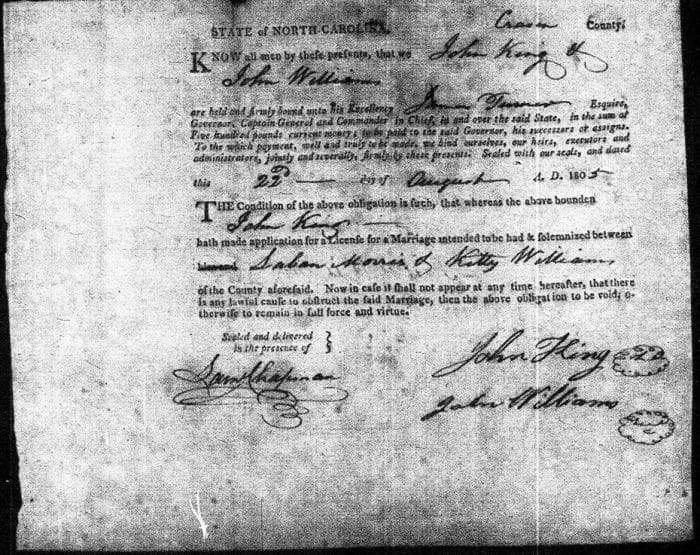 STATE of NORTH-CAROLINA, Craven County.
KNOW all men by these presents, that we John King &
John Williams
are held and firmly bound unto his Excellency James Turner Esquire,
Governor, Captain General and Commander in Chief, in and over the said State, in the sum of
Five hundred pounds current money; to be paid to the said Governor, his successors or assigns.
To the which payment, well and truly to be made, we bind ourselves, our heirs, executors and
administrators, jointly and severally, firmly by these presents. Sealed with our seals, and dated
this 22d day of August A. D. 1805
THE Condition of the above obligation is such, that whereas the above bounden
John King
hath made application for a License for a Marriage intended to be had & solemnized between
Morris & Kitty Williams
of the County aforesaid. Now in case it shall not appear at any time hereafter, that there
is any lawful cause to obstruct the said Marriage, then the above obligation to be void; o-
therwise to remain in full force and virtue.
Sealed and delivered
in the presence of
John King
Saml Chapman
John Williams